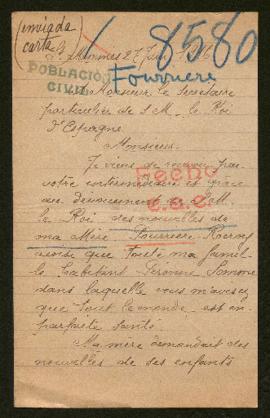 (enviada
carta)
8580
27 Juin
POBLACIÓN
CIVIL
Fourriere
Monsieur le Secrétaire
particulier de S M. le Roi
d'Espagne
Monsieur.
Je viens de recevoir par
votre intermédiaire et grâce
au dévouement de S M.
le Roi des nouvelles de
Hecho
ma Mère Fourriere Rocroy
ainsi que toute ma famil
le habitant Somme
dans laquelle vous m'avisez
que tout le monde est en
parfaite santé.
Ma mère demandait des
nouvelles de ses enfants